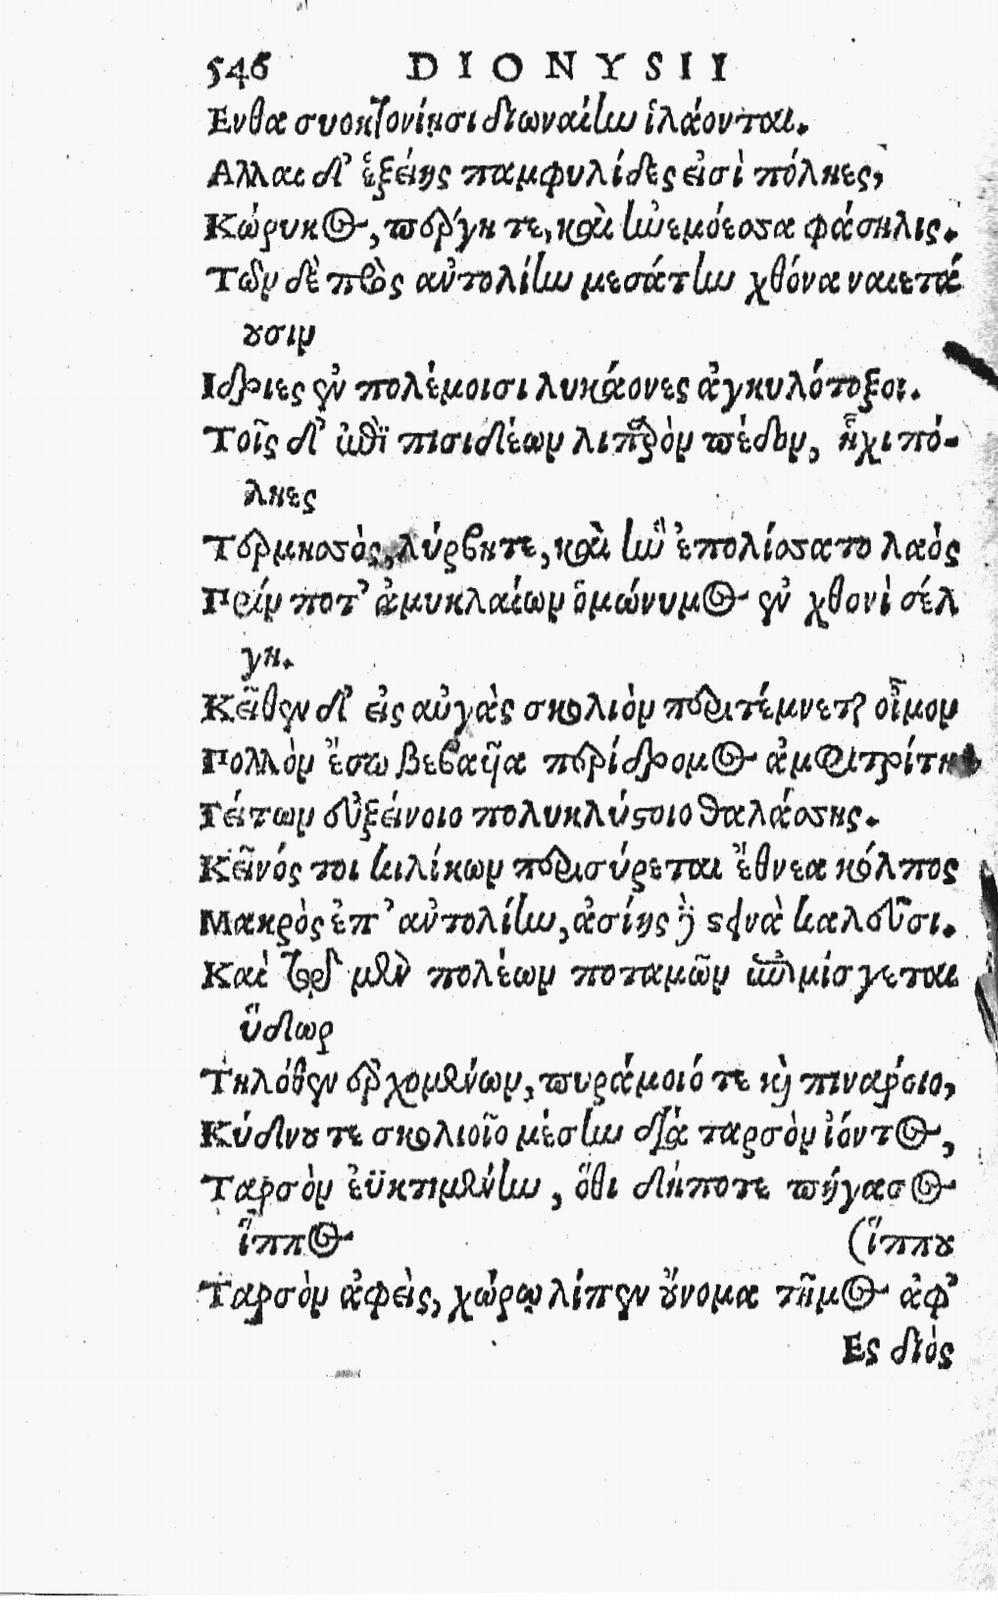 546 DIONYSII
Ενθα συοκτονίῃσι διωναίην ἱλάονται.
Αλλαι δ' ἑξείης παμφυλίδες εἰσὶ πόληες,
Κώρυκος, πέργη τε, καὶ ἠνεμόεσσα φάσηλις.
Τῶν δὲ πρὸς αὐτολίην μεσάτην χθόνα ναιετά
ουσιν
Ιδριες ἐν πολέμοισι λυκάονες ἀγκυλότοξοι.
Τοῖς δ' ἐπὶ πισιδέων λιπαρὸν πέδον, ἧχι πό-
ληες
Τερμησσὸς, λύρβη τε, καὶ ἣν ἐπολίσσατο λαὸς
Πρίν ποτ' ἀμυκλαίων ὁμώνυμος ἐν χθονὶ σέλ
γη.
Κεῖθεν δ' εἰς αὐγὰς σκολιὸν περιτέμνεται οἶμον
Πολλὸν ἔσω βεβαῆα περίδρομος ἀμφιτρίτη
Γείτων εὐξείνοιο πολυκλύστοιο θαλάσσης.
Κεῖνός τοι κιλίκων περισύρεται ἔθνεα κόλπος
Μακρὸς ἐπ' αὐτολίην, ἀσίης δὲ στενὰ καλοῦσι.
Καὶ τῷ μὲν πολέων ποταμῶν ἐπιμίσγεται
ὕδωρ
Τηλόθεν ἐρχομένων, πυράμοιό τε καὶ πινάροιο,
Κύδνου τε σκολιοῖο μέσην διὰ ταρσὸν ἰόντος,
Ταρσὸν ἐϋκτιμένην, ὅθι δήποτε πήγασος
ἵππος (ἵππου
Ταρσὸν ἀφεὶς, χώρῳ λίπεν οὔνομα τῆμος ἀφ'
Ες διὸς